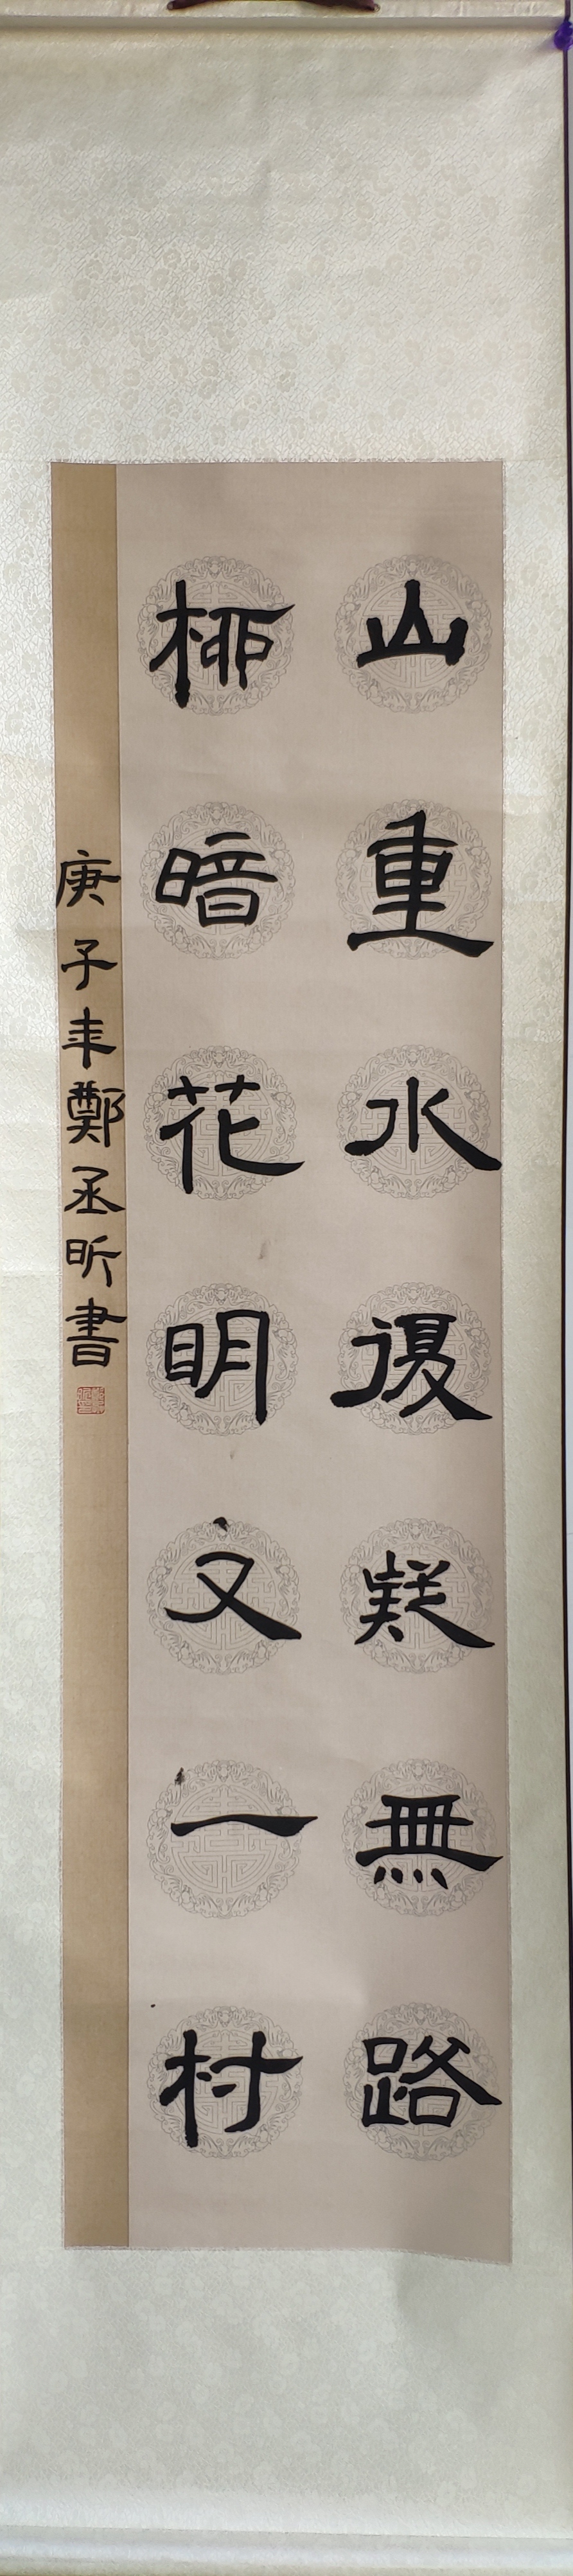 山重水複疑無路
柳暗花明又一村
庚子年鄭丞昕書